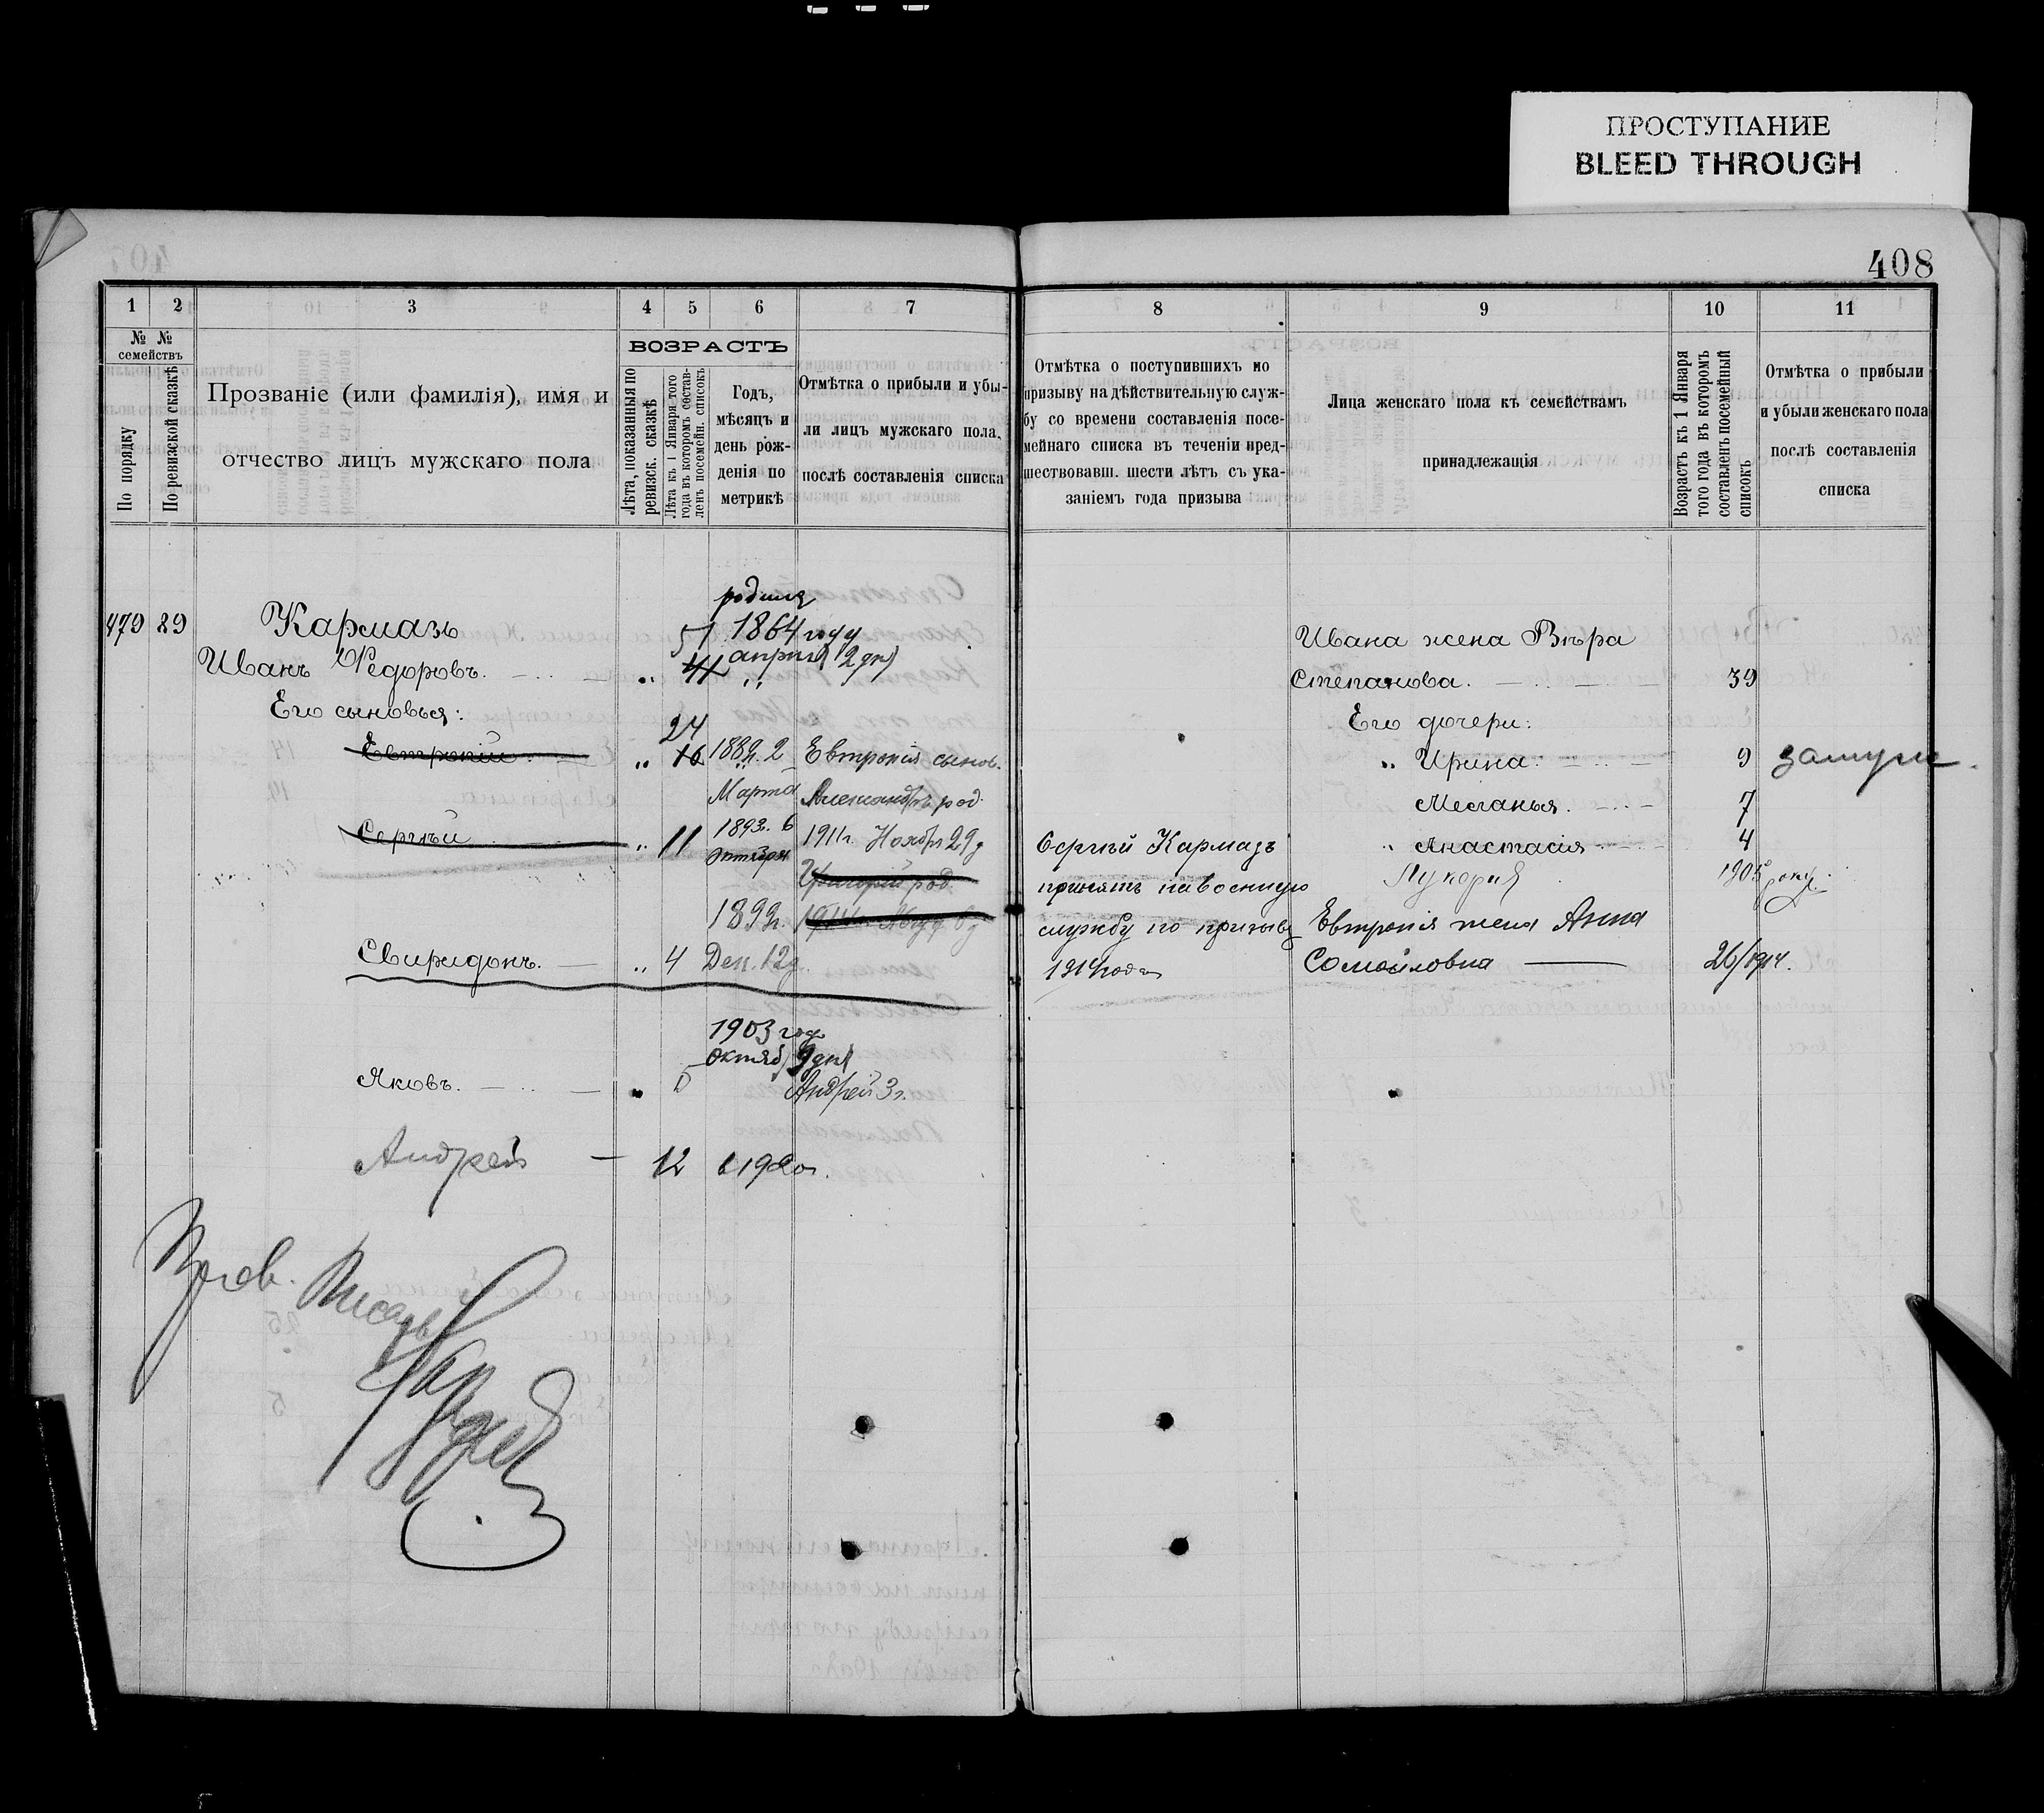 ПРОСТУПАНИЕ
BLEED THROUGH
408
1 2 3 4 5 6 7
№ № семействъ
По порядку
По ревизской сказкѣ
Прозваніе (или фамилія), имя и
отчество лицъ мужскаго пола
ВОЗРАСТЪ
Лѣта, показанныя по
ревизск. сказкѣ
Лѣта къ 1 Января того
года въ которомъ состав-
ленъ посемейн. списокъ
Годъ,
мѣсяцъ и
день рож-
денія по
метрикѣ
Отмѣтка о прибыли и убы-
ли лицъ мужскаго пола,
послѣ составленія списка
479 29 Кармазъ 51 1864 году
Иванъ Ѳедоровъ. 41 апрѣля 2 дня
Его сыновья:
24
Евтропій 16 1889г. 2 Евтропія сынов.
Марта Александръ род.
Сергѣй 11 1893г. 6 1911г. Ноябр 29 д
октября
Григорій род.
1899г.
Свиридонъ. 4 Дек. 12 д.
1903 год
октяб 9 дня
Яковъ. Андрей 3 г.
Андрей 12 в 1920г.
8 9 10 11
Отмѣтка о поступившихъ по
призыву на дѣйствительную служ-
бу со времени составленія посе-
мейнаго списка въ теченіи пред-
шествовавш. шести лѣтъ съ ука-
заніемъ года призыва
Лица женскаго пола къ семействамъ
принадлежащія
Возрастъ къ 1 Января
того года въ которомъ
составленъ посемейный
списокъ
Отмѣтка о прибыли
и убыли женскаго пола
послѣ составленія
списка
Ивана жена Вѣра
Степанова. 39
Его дочери:
Ирина 9 замуж
Меланья. 7
Сергѣй Кармазъ Анастасія 4
принятъ на военную Лукерія 1905 году
службу по призыву Евтропія жена Анна
1914 года Самойловна 26/1914.
Писарь